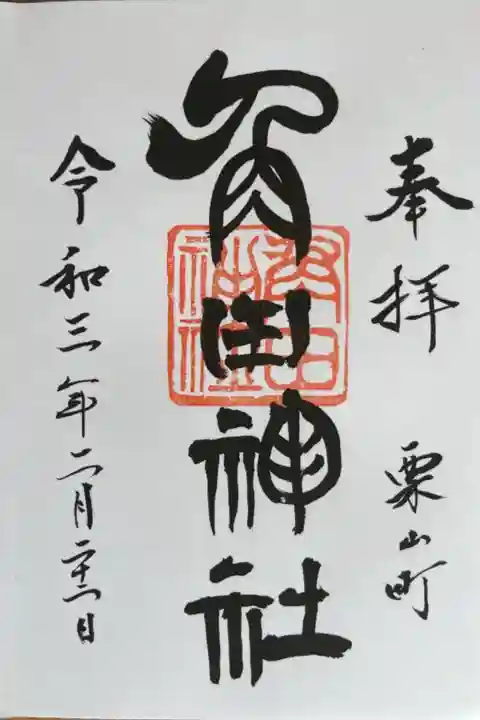 奉拝 栗山町
角田神社
令和三年二月二十二日